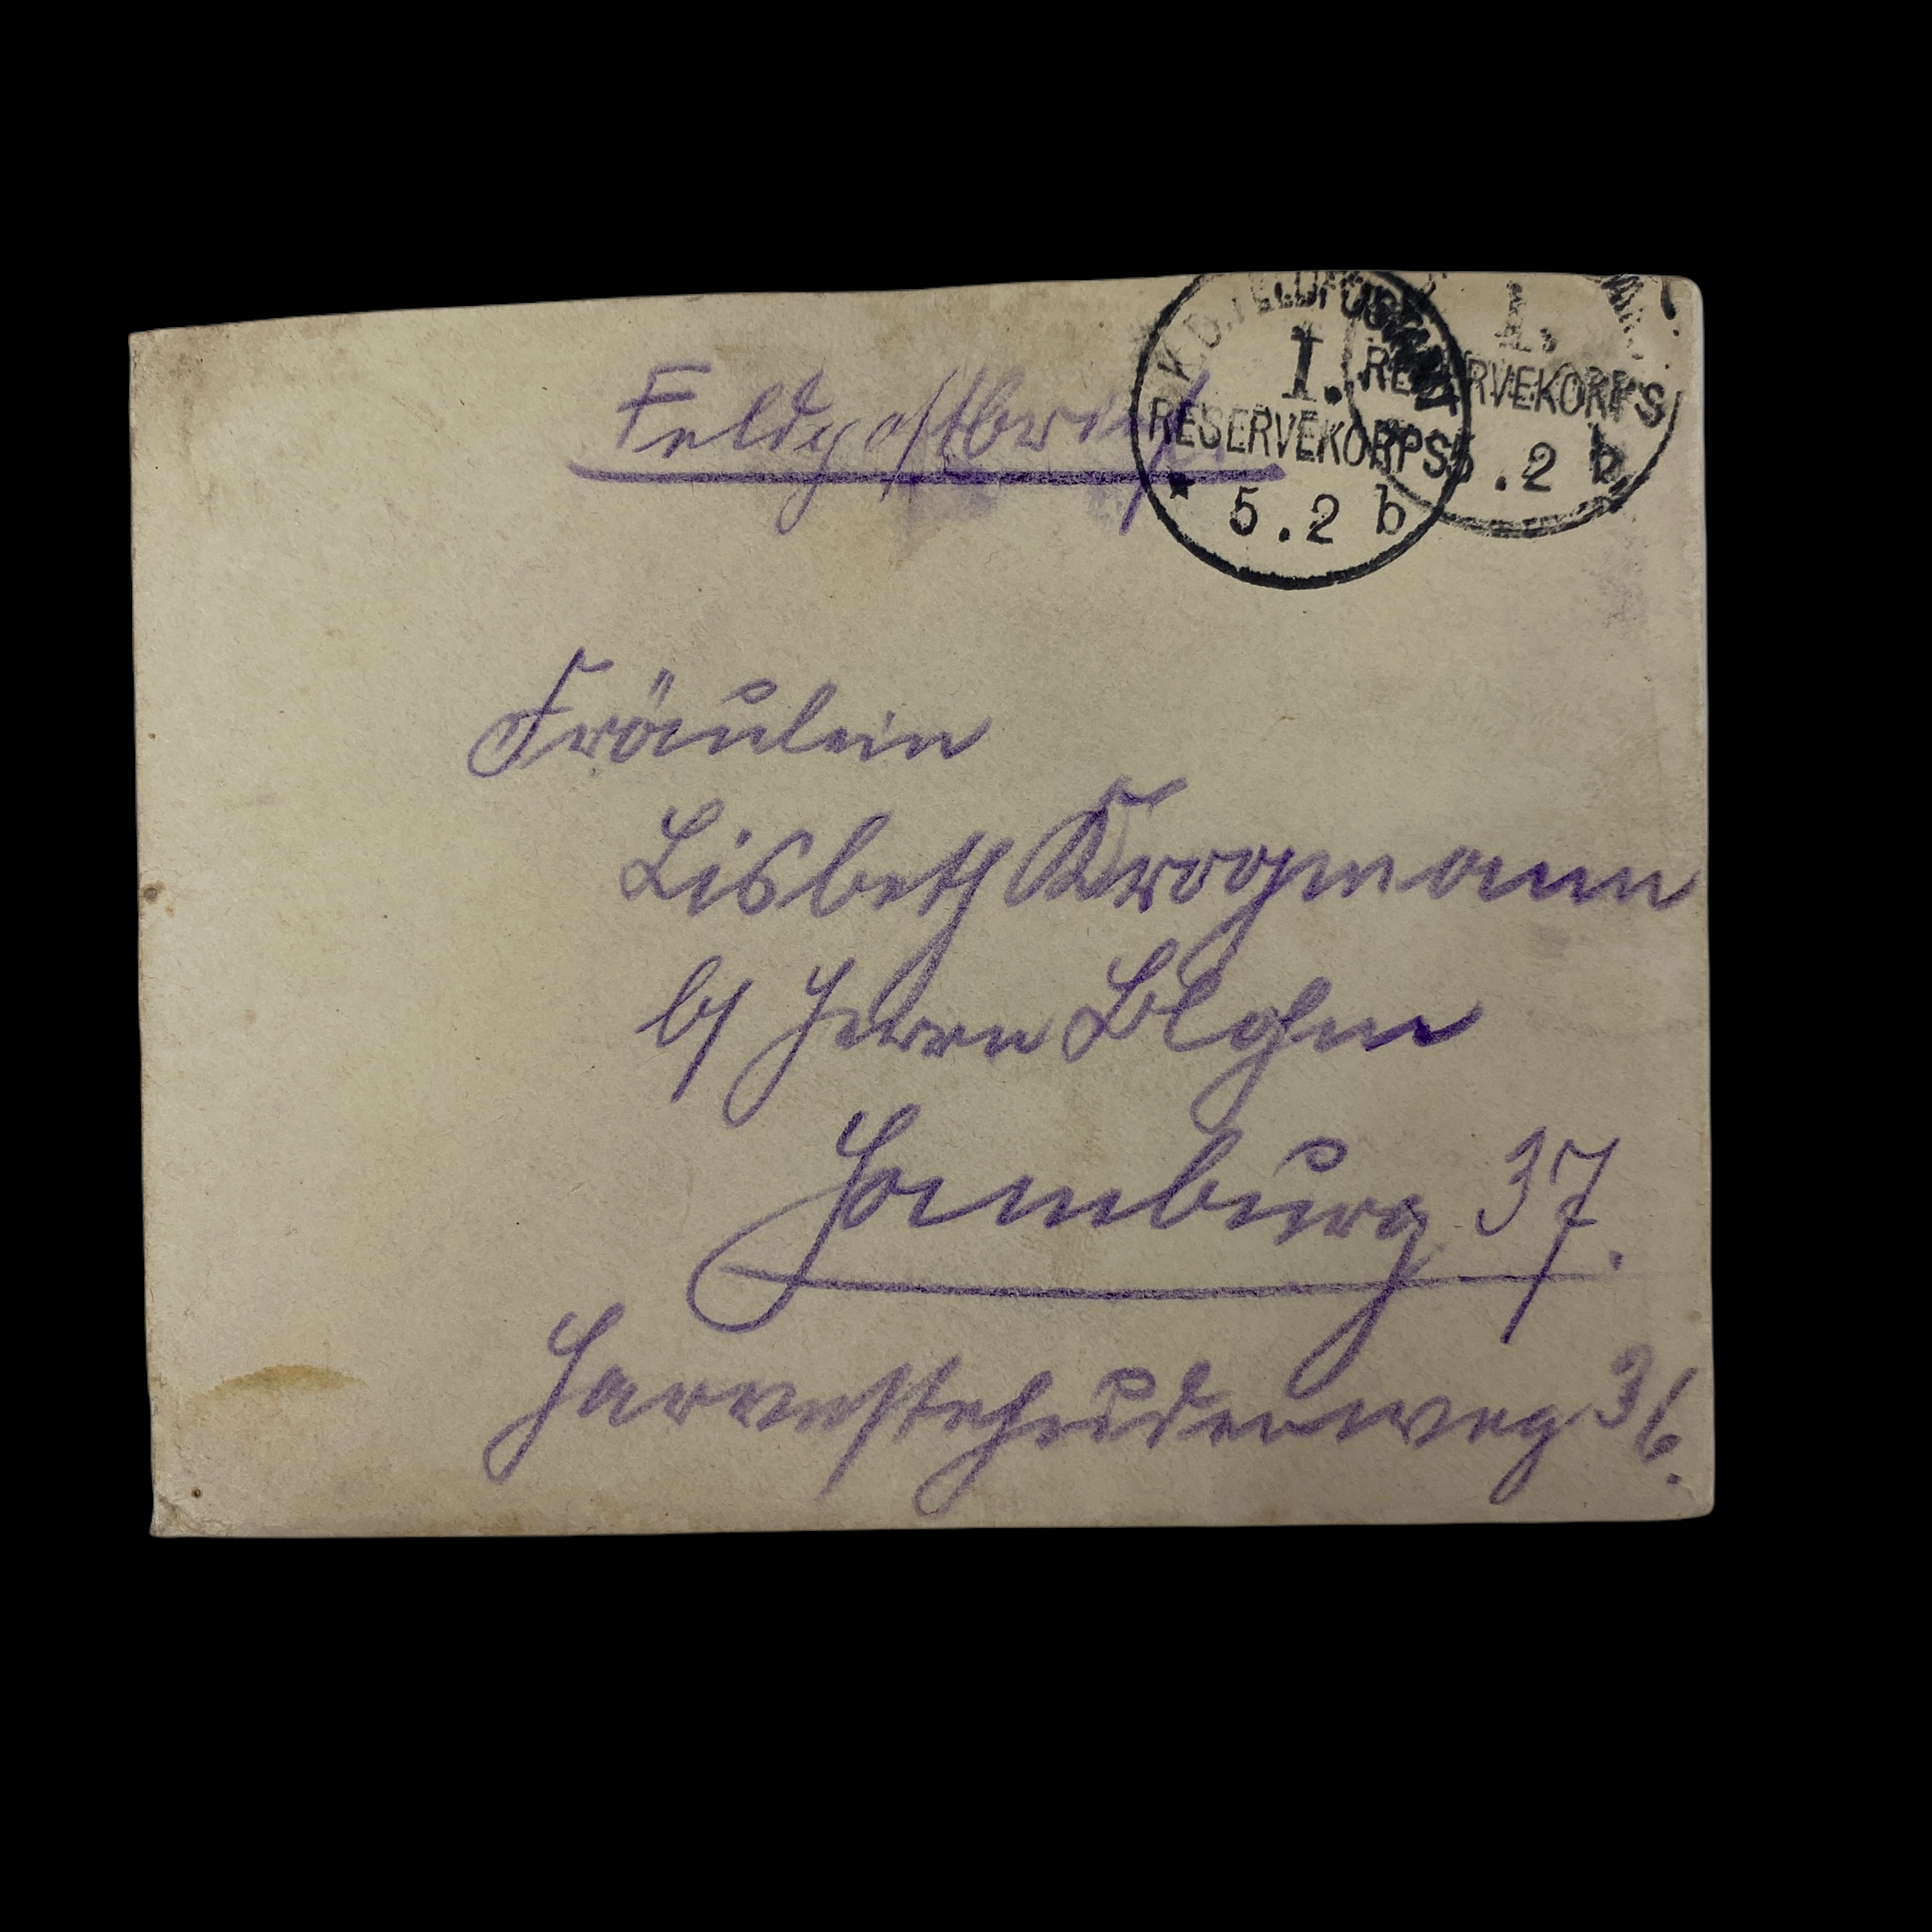 Feldpostbrief
K.D. FELDPOSTAMT
I.
RESERVEKORPS
* 5.2 b
I.
RESERVEKORPS
5.2 b
Fräulein
Lisbeth Krogmann
b/ Herrn
Hamburg 37.
Harvestehuderweg 36.